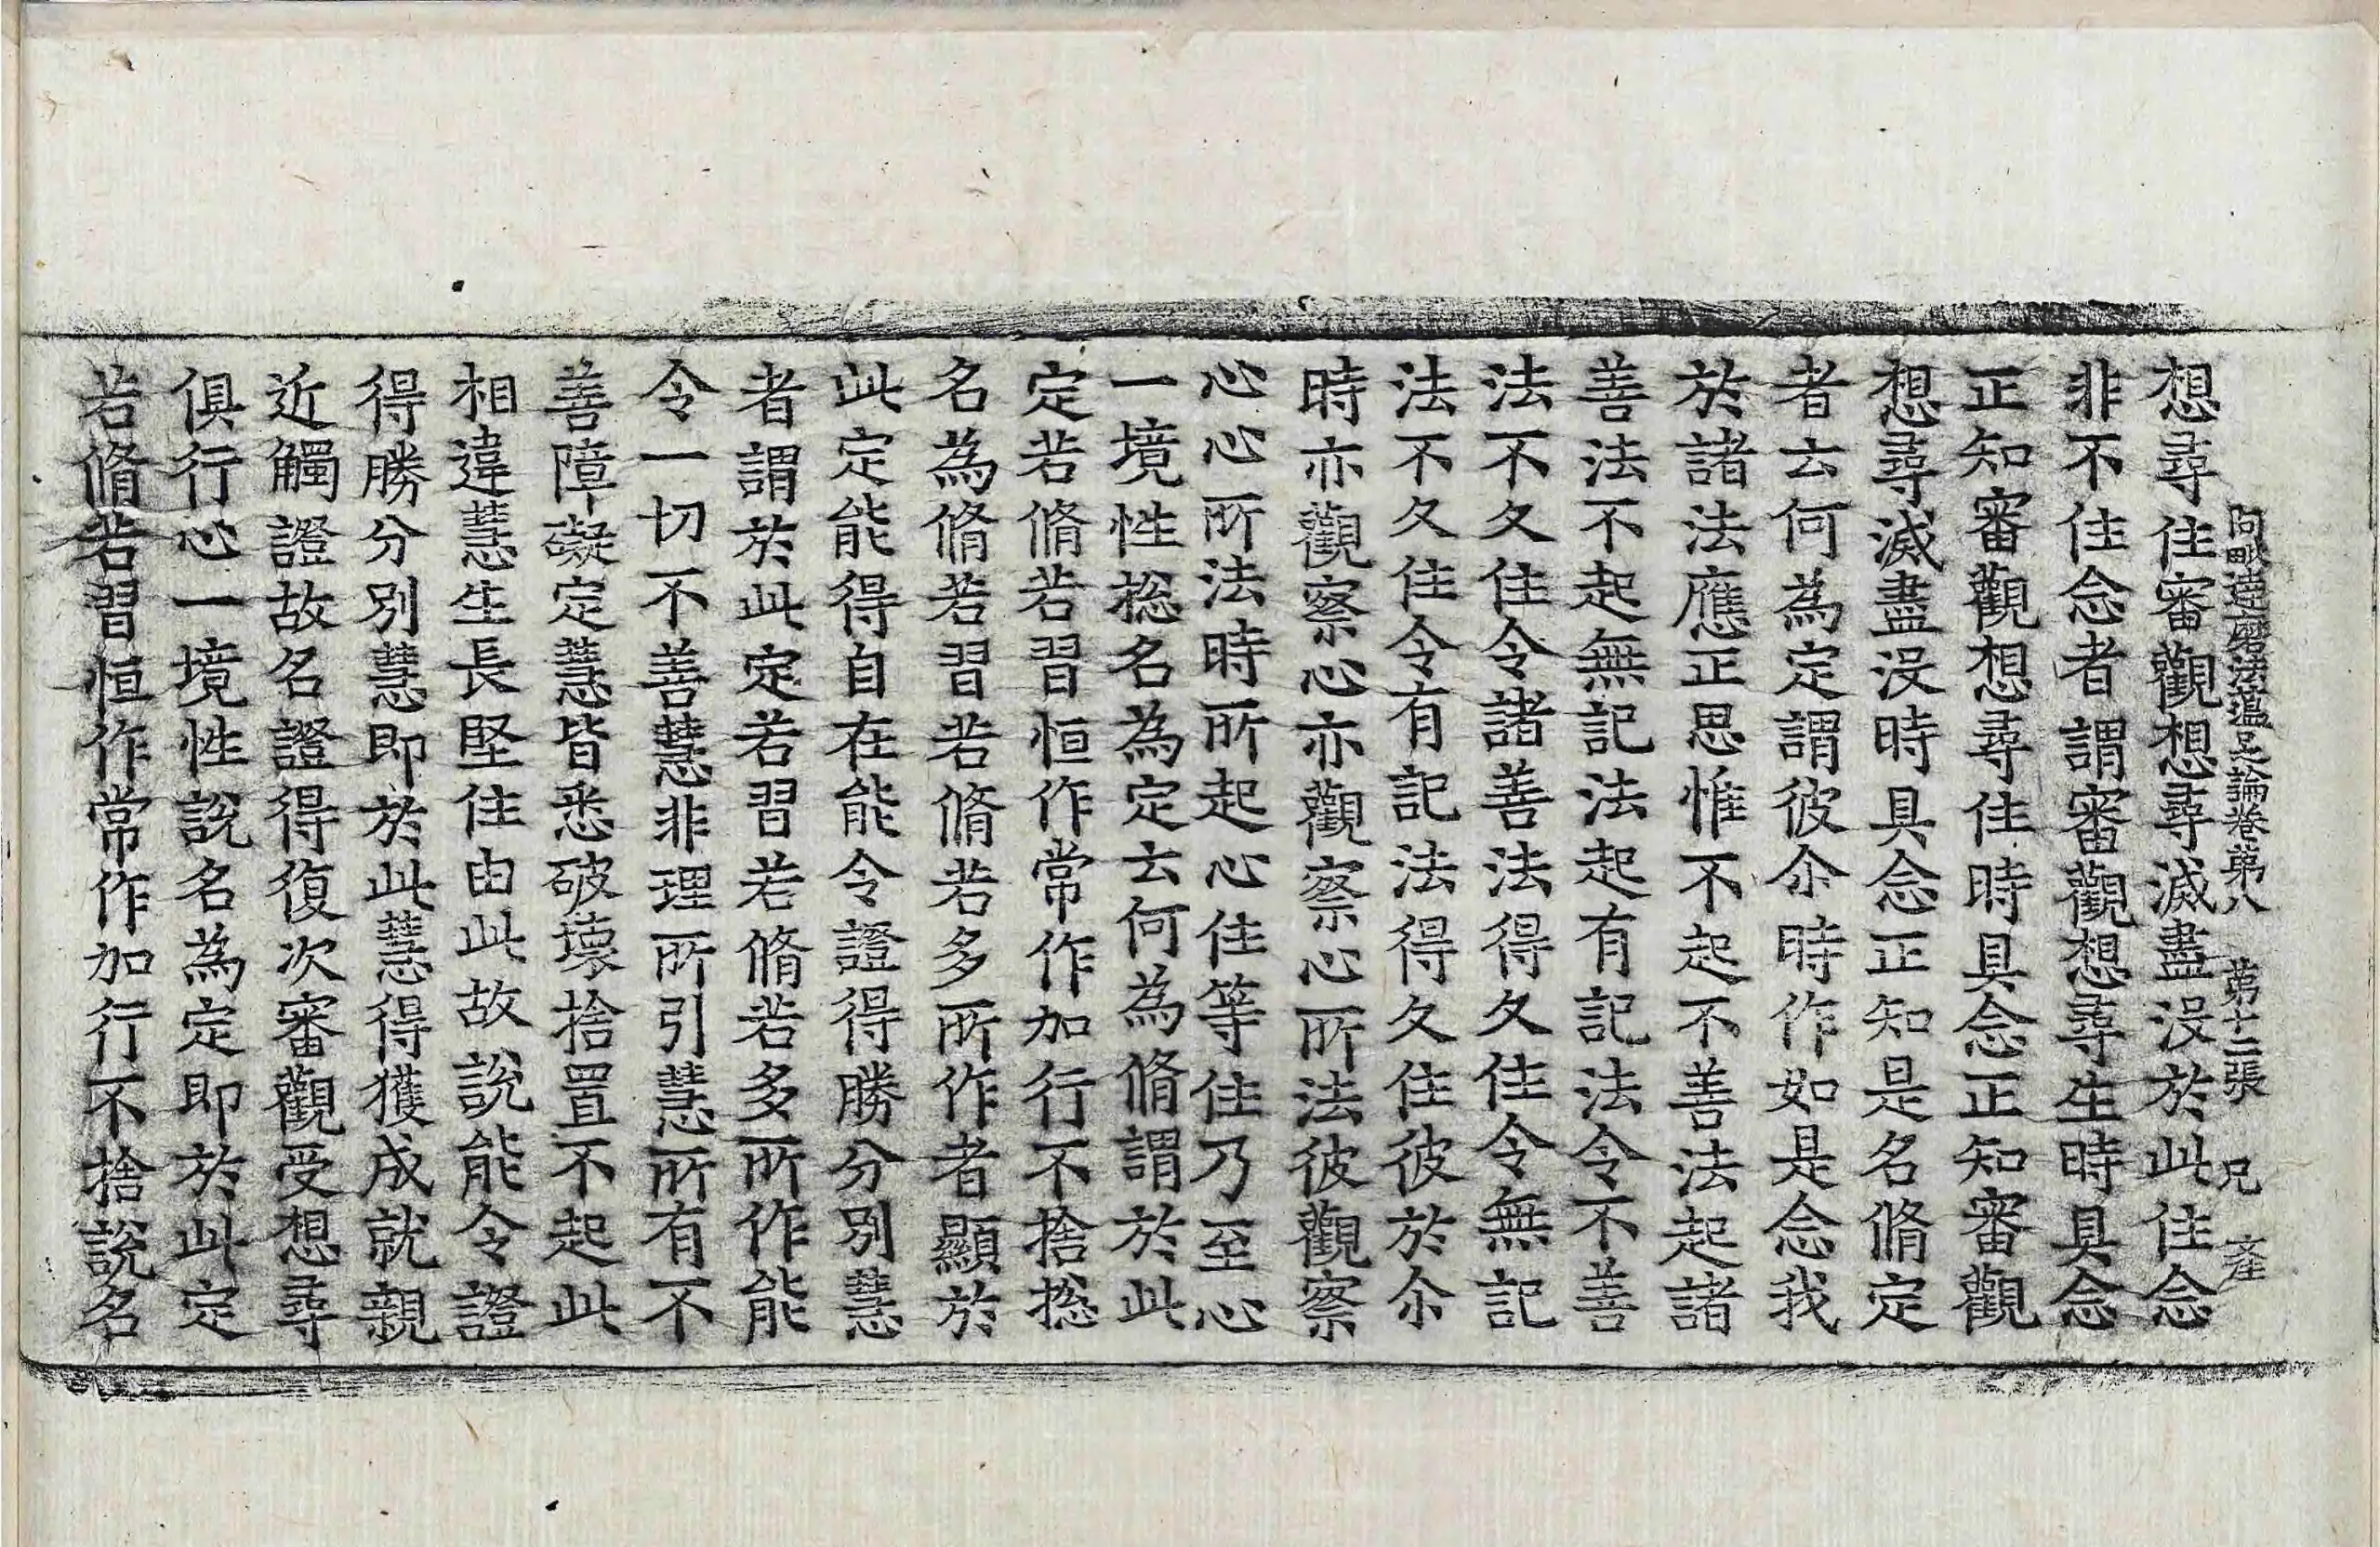 阿毗達磨法蘊足論卷第八 第十二張 兄
想尋住審觀想尋滅盡没於此住念
非不住念者謂審觀想尋生時具念
正知審觀想尋住時具念正知審觀
想尋滅盡没時具念正知是名脩定
者云何為定謂彼尒時作如是念我
於諸法應正思惟不起不善法起諸
善法不起無記法起有記法令不善
法不久住令諸善法得久住令無記
法不久住令有記法得久住彼於尒
時亦觀察心亦觀察心所法彼觀察
心心所法時所起心住等住乃至心
一境性揔名為定云何為脩謂於此
定若脩若習恒作常作加行不捨揔
名為脩若習若脩若多所作者顯於
此定能得自在能令證得勝分別慧
者謂於此定若習若脩若多所作能
令一切不善慧非理所引慧所有不
善障礙定慧皆悉破壞捨置不起此
相違慧生長堅住由此故說能令證
得勝分別慧即於此慧得獲成就親
近觸證故名證得復次審觀受想尋
俱行心一境性說名為定即於此定
若脩若習恒作常作加行不捨說名